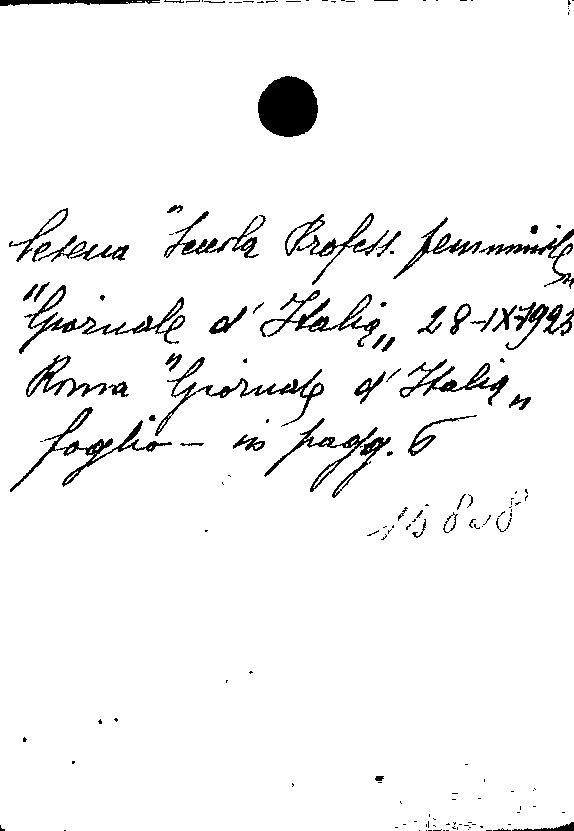 Cesena "Scuola Profess. femminile„
"Giornale d'Italia„ 28-IX-1923
Roma "Giornale d'Italia„
foglio - in pagg. 6